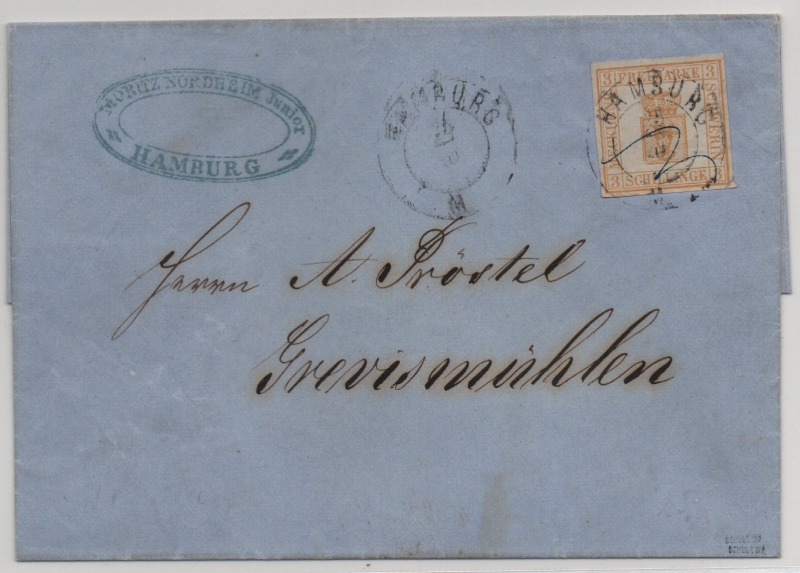 MORITZ NORDHEIM Junior
HAMBURG
HAMBURG
M
3 FREIMARKE 3
HAMBURG
3 SCHILLINGE
Herrn A. Pröstel
Grevismühlen